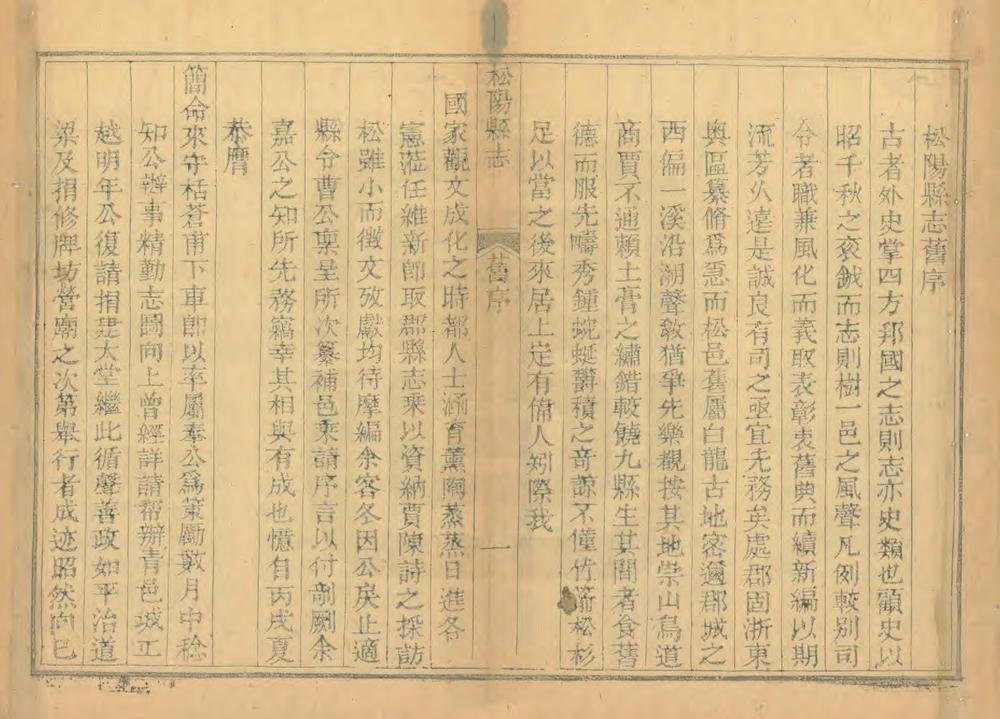 松陽縣志舊序
古者外史掌四方邦國之志則志亦史類也顧史以
昭千秋之袞鉞而志則樹一邑之風聲凡例較别司
令者職兼風化而義取表彰衷舊典而續新編以期
流芳久遠是誠良有司之亟宜先務矣處郡固浙東
奥區纂脩爲亟而松邑舊屬白龍古地密邇郡城之
西偏一溪沿溯聲教猶爭先樂觀按其地崇山鳥道
商賈不通賴土膏之繡錯較饒九縣生其間者食舊
德而服先疇秀鍾蜿蜒欝積之竒諒不僅竹箭松杉
足以當之後來居上定有偉人矧際我
松陽縣志
舊序
一
國家觀文成化之時都人士涵育薰陶蒸蒸日進各
憲涖任維新即取郡縣志乘以資納賈陳詩之採訪
松雖小而徵文攷獻均待摩編余客冬因公戾止適
縣令曹公稟呈所次纂補邑乘請序言以付剞劂余
嘉公之知所先務竊幸其相與有成也憶自丙戌夏
恭膺
簡命來守栝蒼甫下車即以率屬奉公爲策勵數月中稔
知公辦事精勤志圖向上曾經詳請帮辦青邑城工
越明年公復請捐建大堂繼此循聲善政如平治道
梁及捐修牌坊營廟之次第舉行者成迹昭然向已